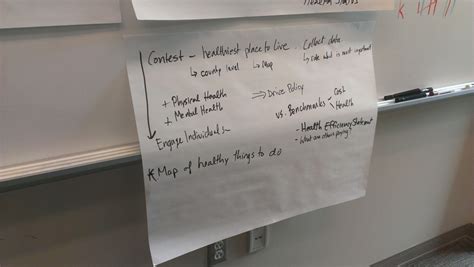 Contest - healthiest place to live .. Collect data
↳ county level ↳ Map ↳ rate what is most important
+ Physical Health
+ Mental Health
⇒ Drive Policy
vs. Benchmarks
Cost
Health
Engage Individuals
- Health Efficiency Statement
- What are others paying?
* Map of healthy things to do